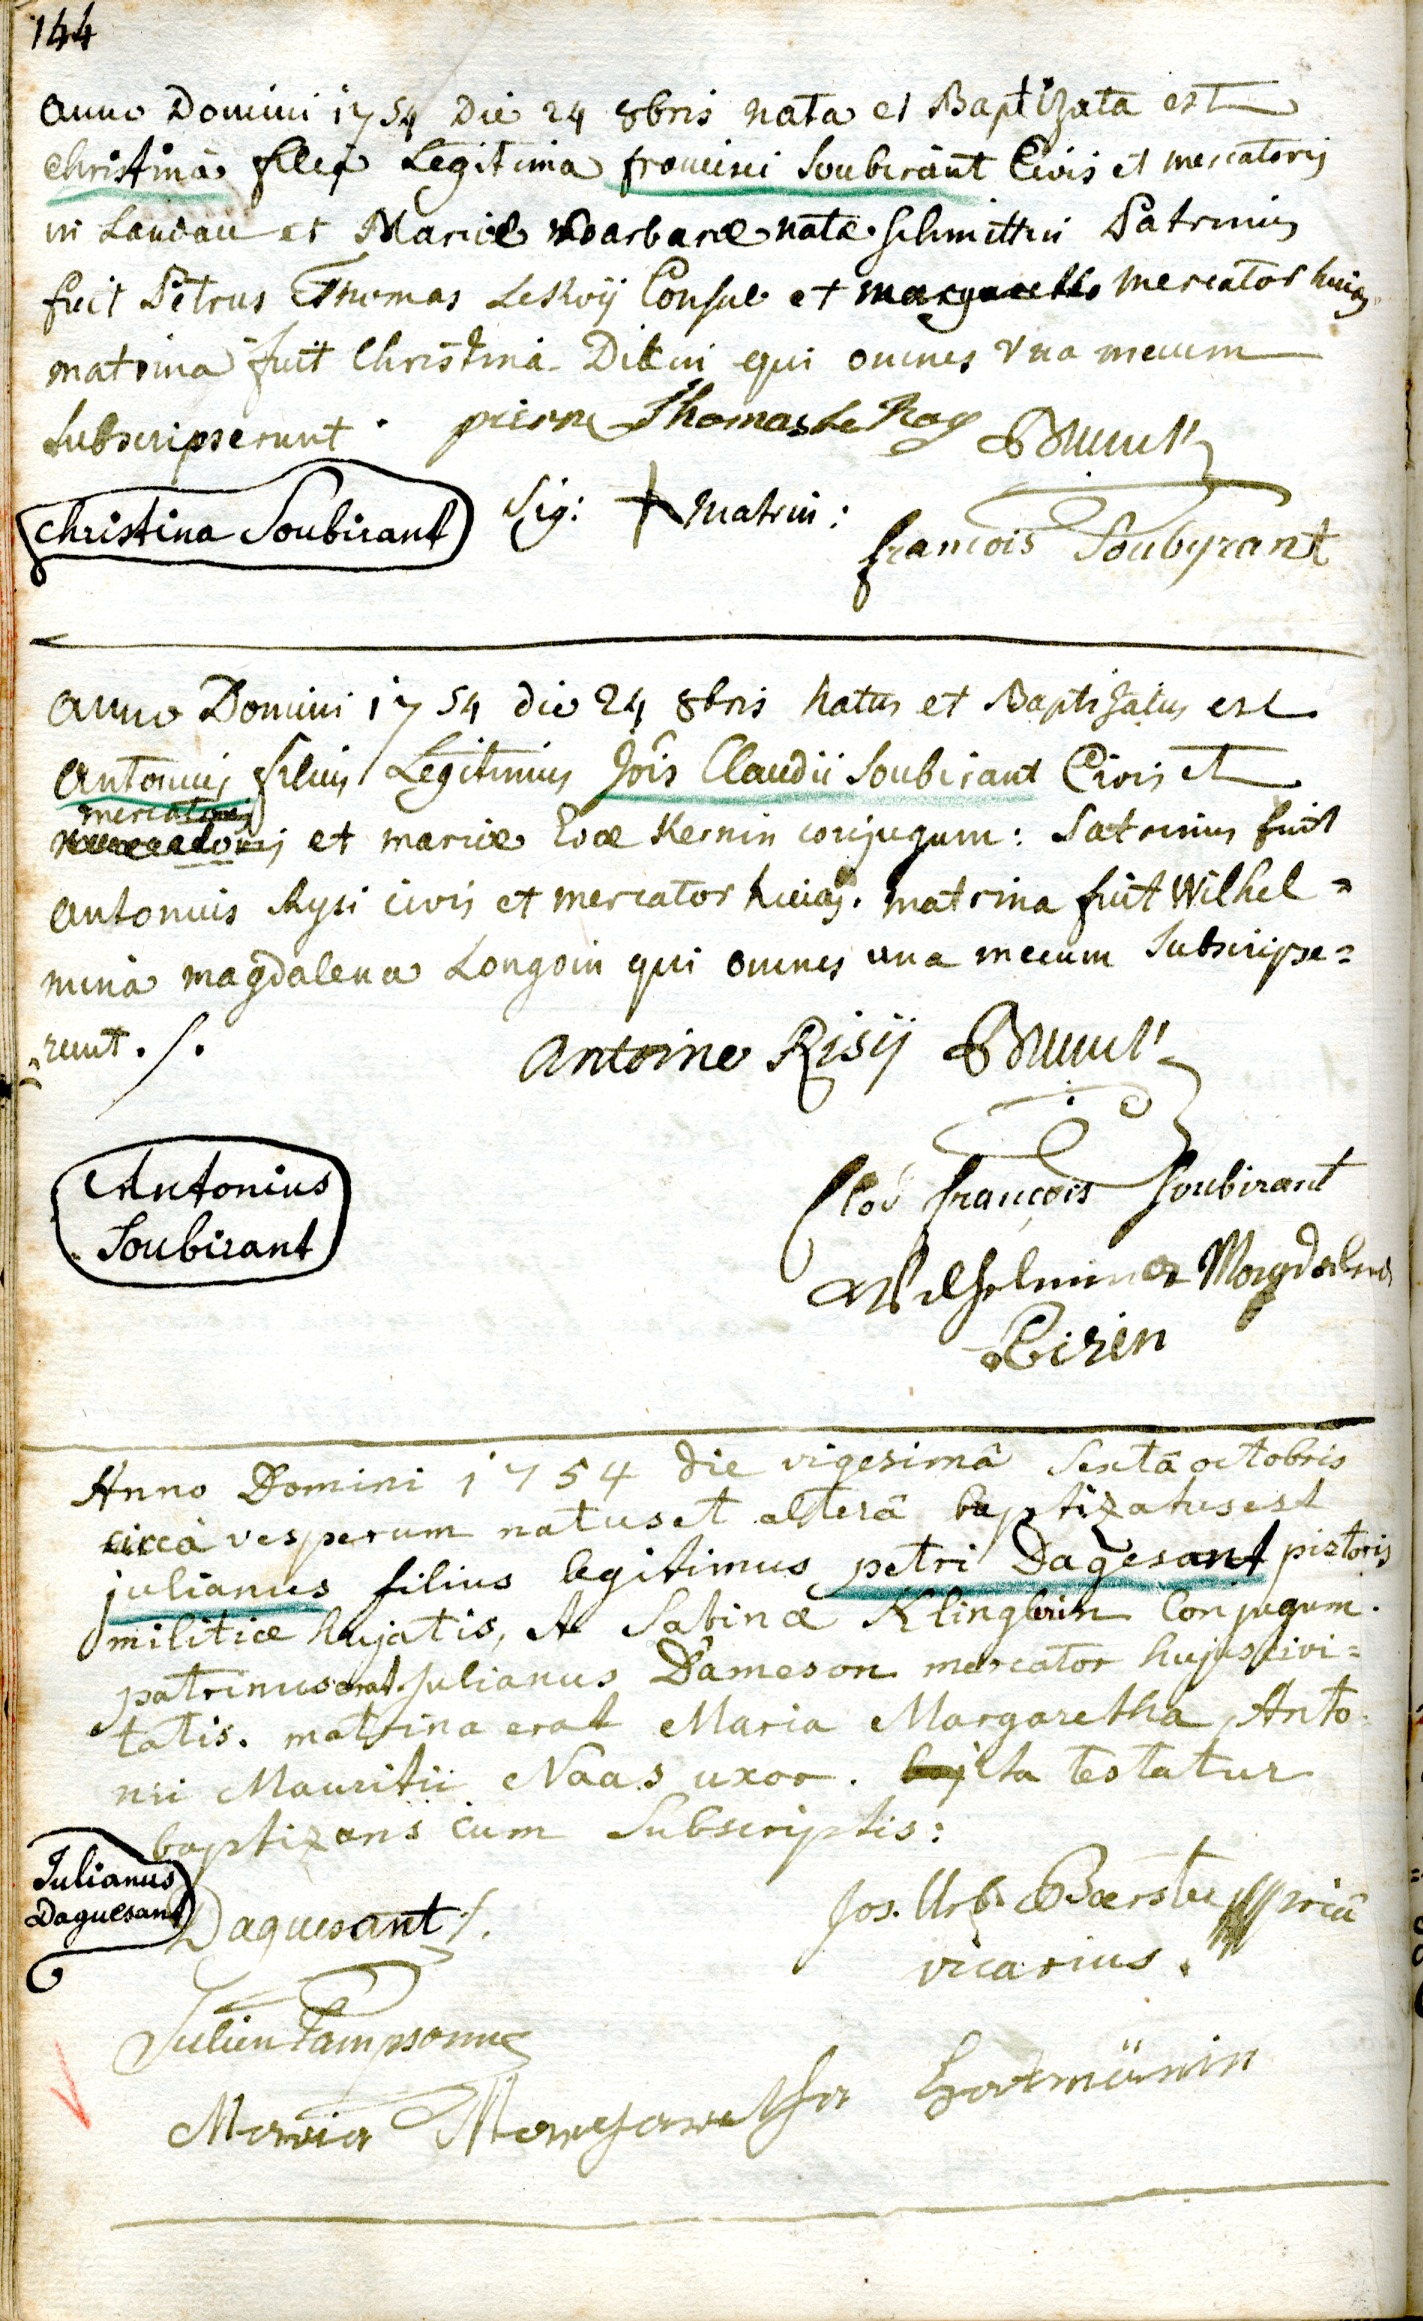 144
Anno Domini 1754 Die 24 8bris nata et Baptizata est
Christina filia Legitima francisci Soubirant Civis et mercatoris
in Landau et Mariæ Barbaræ natæ Schmittin Patrinus
fuit Petrus Thomas LeRoÿ Consul et mercator huias
matrina fuit Christina qui omnes vna mecum
Subscripserunt. pierre Thomas Le Roy
Christina Soubirant
Sig: + Matrin:
francois Soubyrant
Anno Domini 1754 die 24 8bris Natus et Baptisatus est
Antonius filius Legitimus Jôis Claudii Soubirant Civis et
mercatoris
et mariæ Evæ Kernin conjugum: Patrinus fuit
Antonius Rysi civis et mercator huias. matrina fuit Wilhel=
mina magdalena Longoin qui omnes una mecum Subscripse=
=runt. /.
Antoine Risÿ
Antonius
Soubirant
Clod françois Soubirant
Wilhelmina Magdalena
Anno Domini 1754 die vigesimâ Sextâ octobris
circà vesperum natus et alterâ baptizatus est
julianus filius legitimus petri Dagesant pistoris
militiæ hujatis, et Sabinæ Klinglerin Conjugum.
patrinus erat Julianus Dameson mercator hujus civi=
tatis. matrina erat Maria Margaretha Anto
nii Mauritii Naas uxor. ita testatur
baptizans cum Subscriptis:
Julianus
Daguesant
Daguesant /.
Jos. Urb.
vicarius.
Julien
Maria Margaretha Hartmänin